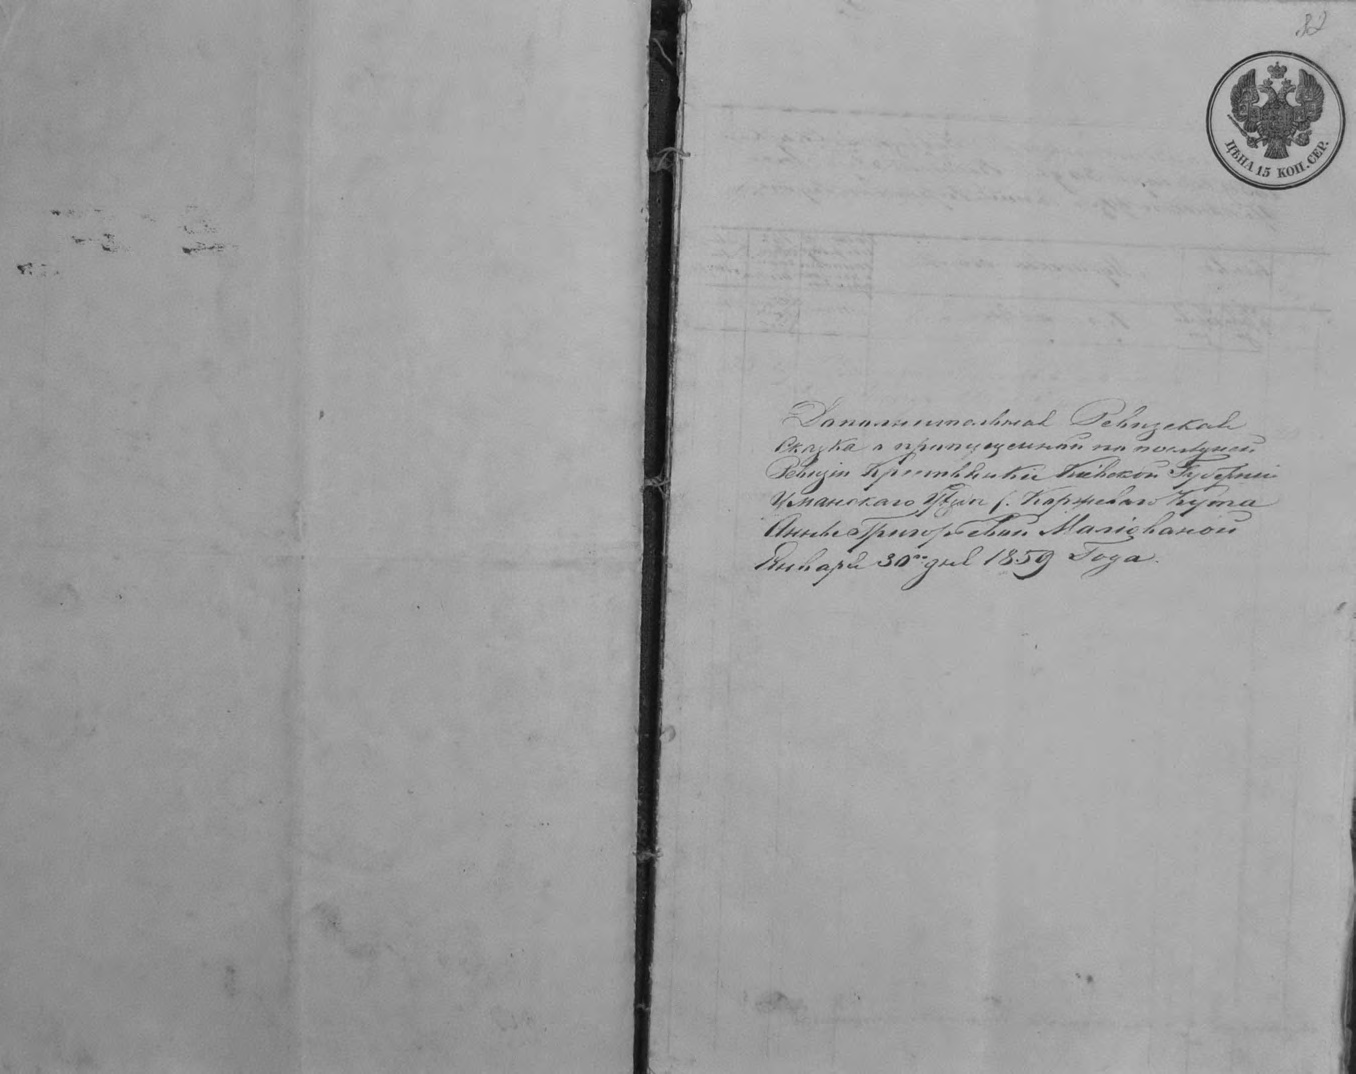 32
ЦѢНА 15 КОП. СЕР.
Дополнительная Ревизская
Сказка о пропущенной по последней
Ревизіи крестьянки Кіевской Губерніи
Уманскаго Уѣзда с. Коржеваго Кута
Аннѣ Григорьевой Маліованой
Января 30го дня 1859 Года.